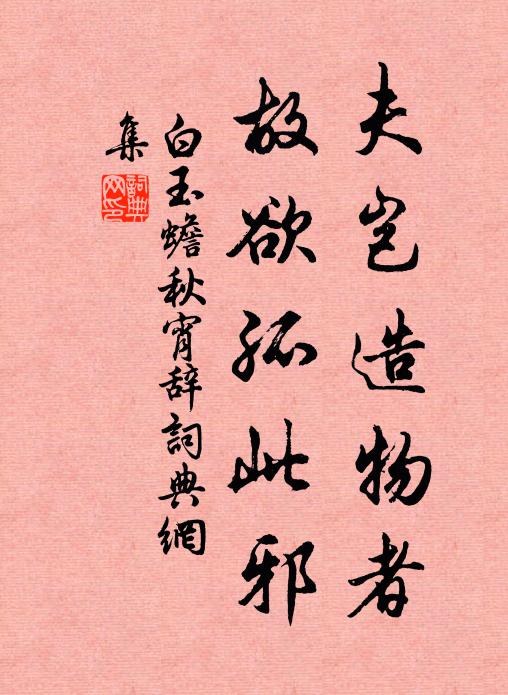 夫岂造物者
故欲孤此邪
白玉蟾秋宵辞詞典網
集
詞典网印